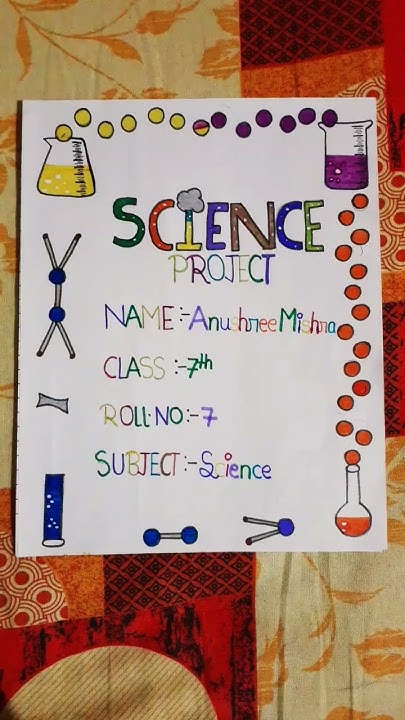 SCIENCE
PROJECT
NAME:-Anushree Mishra
CLASS:-7th
ROLL.NO:-7
SUBJECT:-Science